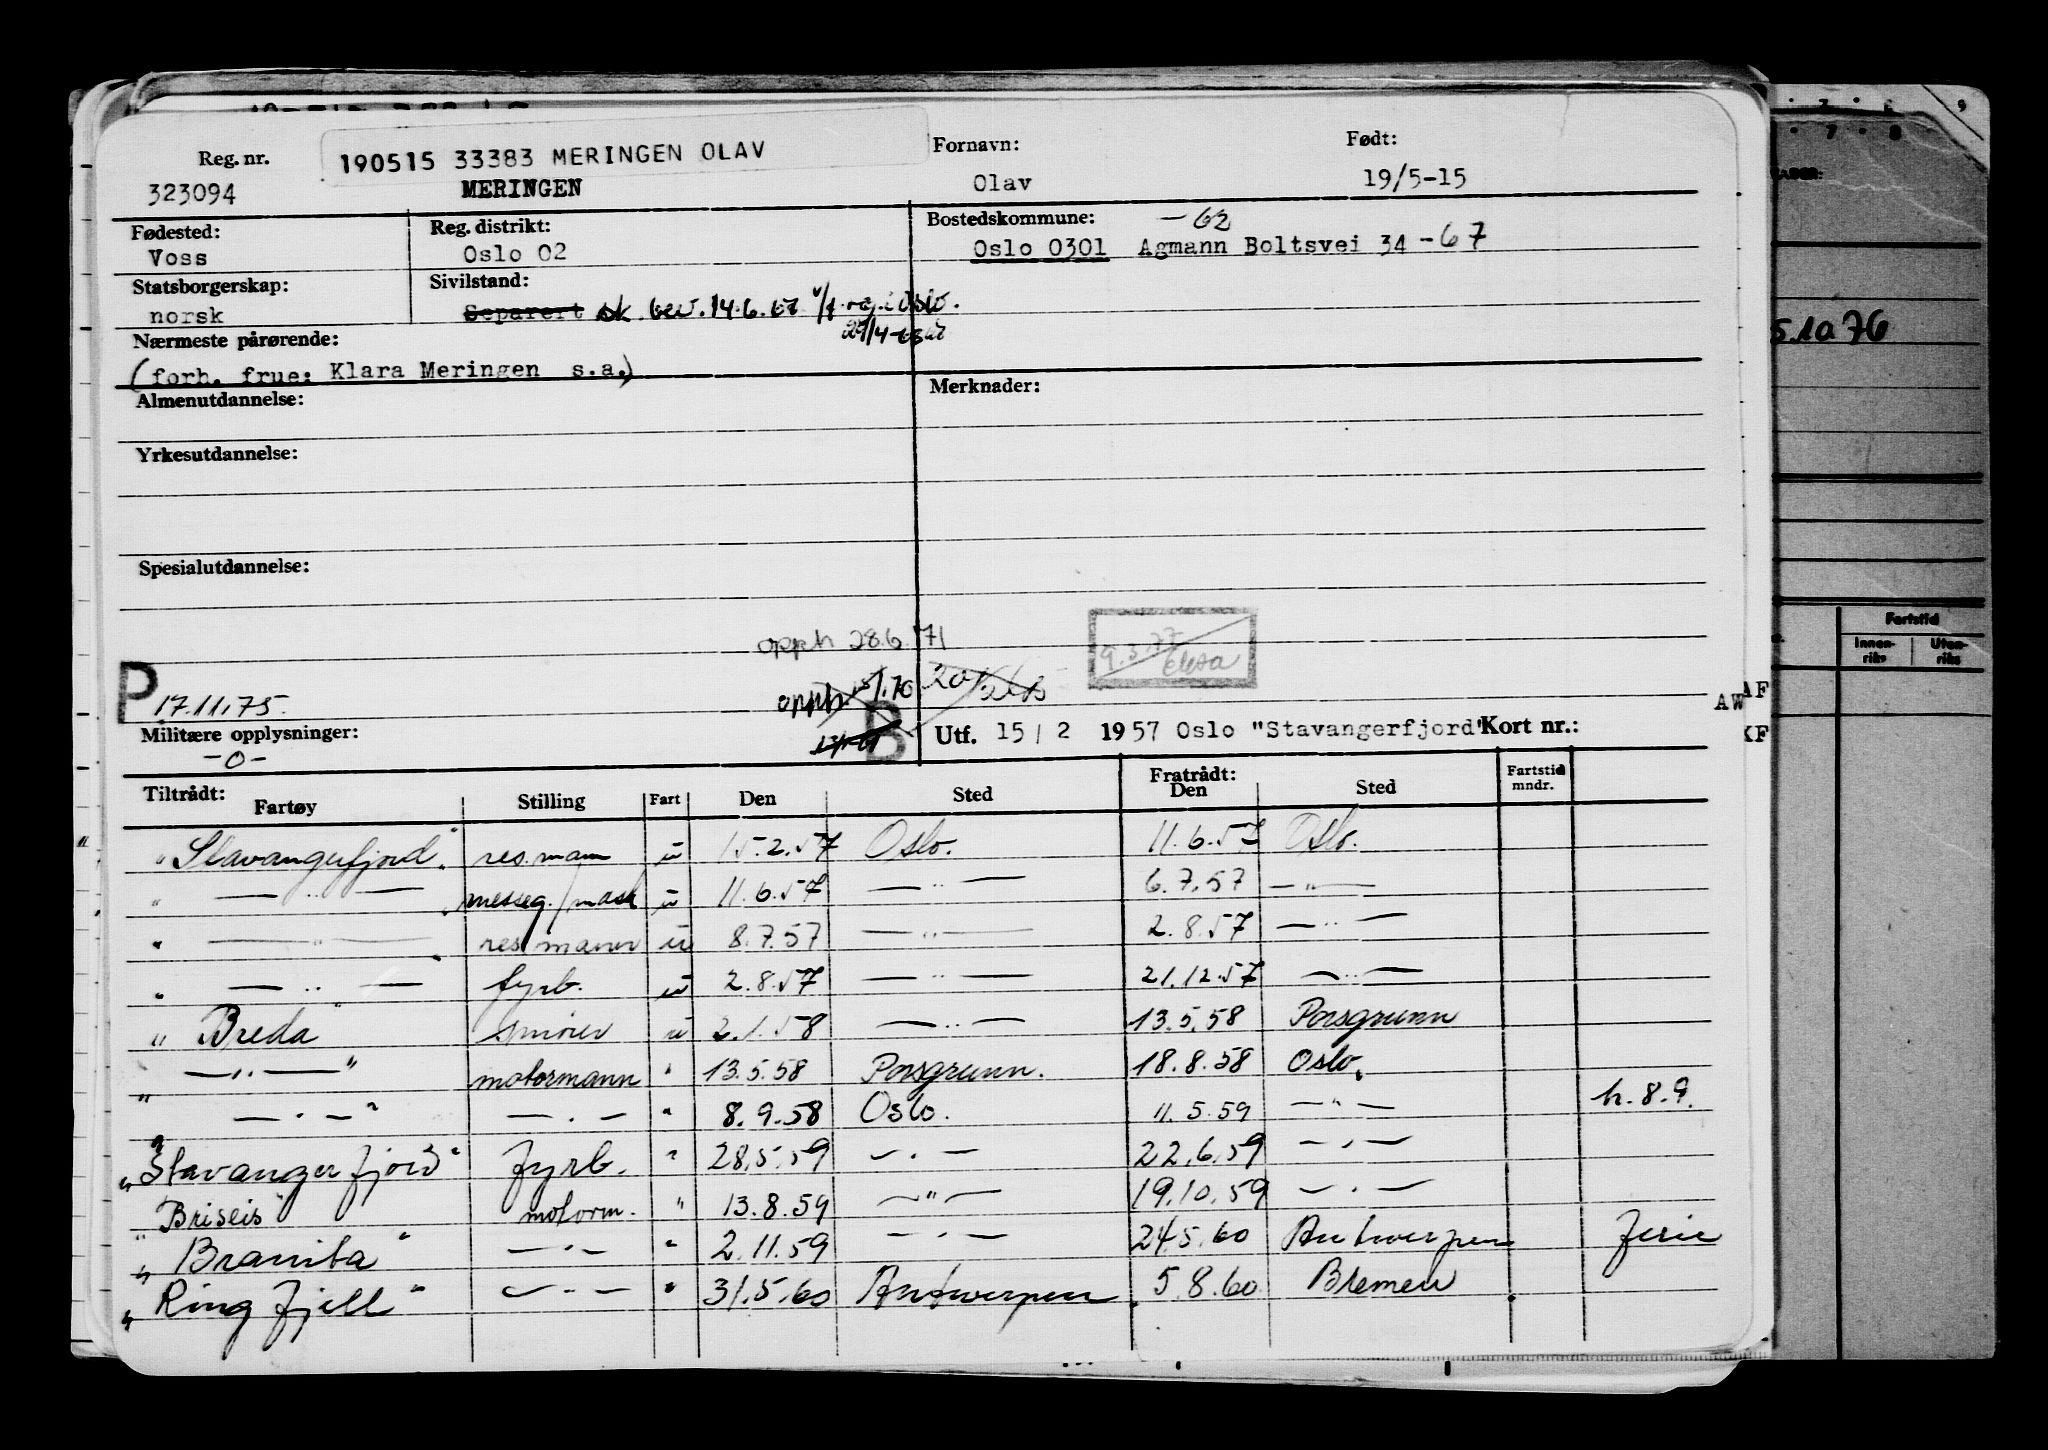 Reg. nr. 190515 33383 MERINGEN OLAV Fornavn: Født:
323094 MERINGEN Olav 19/5-15
Fødested: Reg. distrikt: Bostedskommune: -62
Voss Oslo 02 Oslo 0301 Agmann Boltsvei 34 -67
Statsborgerskap: Sivilstand:
norsk Separert sk. bev. 14.6.67 v/f. rg. i Oslo.
Nærmeste pårørende:
(forh. frue: Klara Meringen s.a.)
5.10 76
Almenutdannelse: Merknader:
Yrkesutdannelse:
Spesialutdannelse:
Fartstid
Innen-riks Uten-riks
opph 28.6.71
9.3.77
P 17.11.75. opph.
AW AF
Militære opplysninger: B Utf. 15/2 1957 Oslo "Stavangerfjord" Kort nr.: KF
-0-
Tiltrådt: Fartøy Stilling Fart Den Sted Fratrådt: Den Sted Fartstid mndr.
"Stavangerfjord" res.mann u 15.2.57 Oslo. 11.6.57 Oslo.
" — " — messeg./mask u 11.6.57 — " — 6.7.57 — " —
" — " — res mann u 8.7.57 — " — 2.8.57 — " —
" — " — fyrb. u 2.8.57 — " — 21.12.57 — " —
"Breda" smører u 2.1.58 — " — 13.5.58 Porsgrunn
" — " — " motormann " 13.5.58 Porsgrunn. 18.8.58 Oslo.
" — " — " — " — " 8.9.58 Oslo. 11.5.59 — " — h.8.9.
"Stavangerfjord" fyrb. " 28.5.59 — " — 22.6.59 — " —
"Briseis" motorm. " 13.8.59 — " — 19.10.59 — " —
"Bramita" — " — " 2.11.59 — " — 24.5.60 Antwerpen ferie
"Ringfjell" — " — " 31.5.60 Antwerpen 5.8.60 Bremen